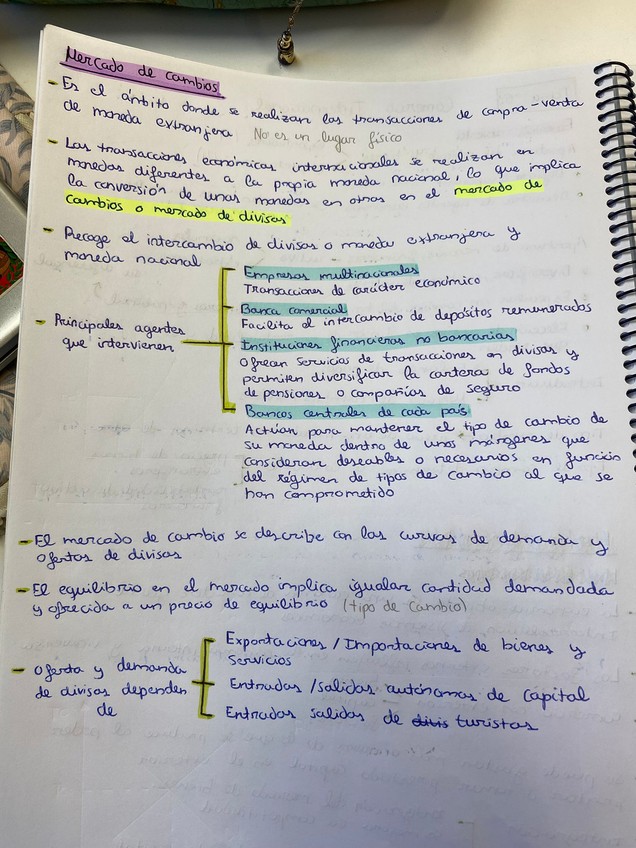 Mercado de cambios
- Es el ámbito donde se realizan las transacciones de compra-venta
de moneda extranjera No es un lugar físico
- Las transacciones económicas internacionales se realizan en
monedas diferentes a la propia moneda nacional, lo que implica
la conversión de unas monedas en otras en el mercado de
cambios o mercado de divisas
- Recoge el intercambio de divisas o moneda extranjera y
moneda nacional
- Principales agentes
que intervienen
Empresas multinacionales
Transacciones de carácter económico
Banca comercial
Facilita el intercambio de depósitos remunerados
Instituciones financieras no bancarias
Ofrean servicios de transacciones en divisas y
permiten diversificar la cartera de fondos
de pensiones o compañías de seguro
Bancos centrales de cada país
Actúan para mantener el tipo de cambio de
su moneda dentro de unos márgenes que
consideran deseables o necesarios en función
del régimen de tipos de cambio al que se
han comprometido
- El mercado de cambio se describe con las curvas de demanda y
ofertas de divisas
- El equilibrio en el mercado implica igualar cantidad demandada
y ofrecida a un precio de equilibrio (tipo de cambio)
- Oferta y demanda
de divisas dependen
de
Exportaciones / Importaciones de bienes y
servicios
Entradas /salidas autónomas de capital
Entradas salidas de divis turistas